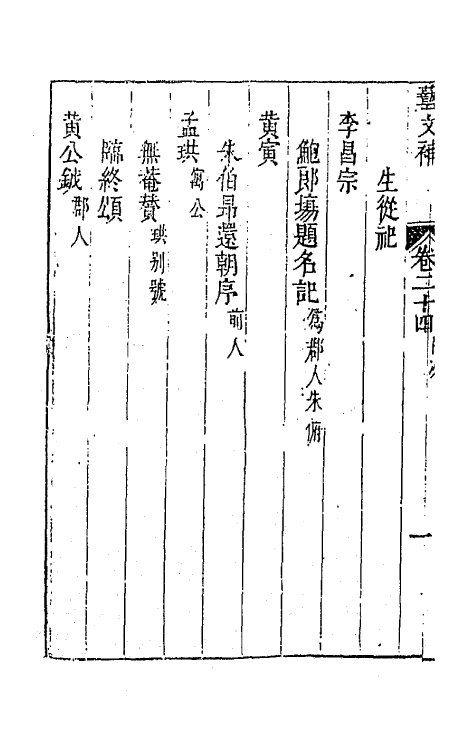 藝文補 卷二十四 目次 一
生從祀
李昌宗
鮑郎場題名記 爲郡人朱俯
黄寅
朱伯昻還朝序 前人
孟珙 寓公
無菴贊 珙别號
臨終頌
黄公鉞 郡人